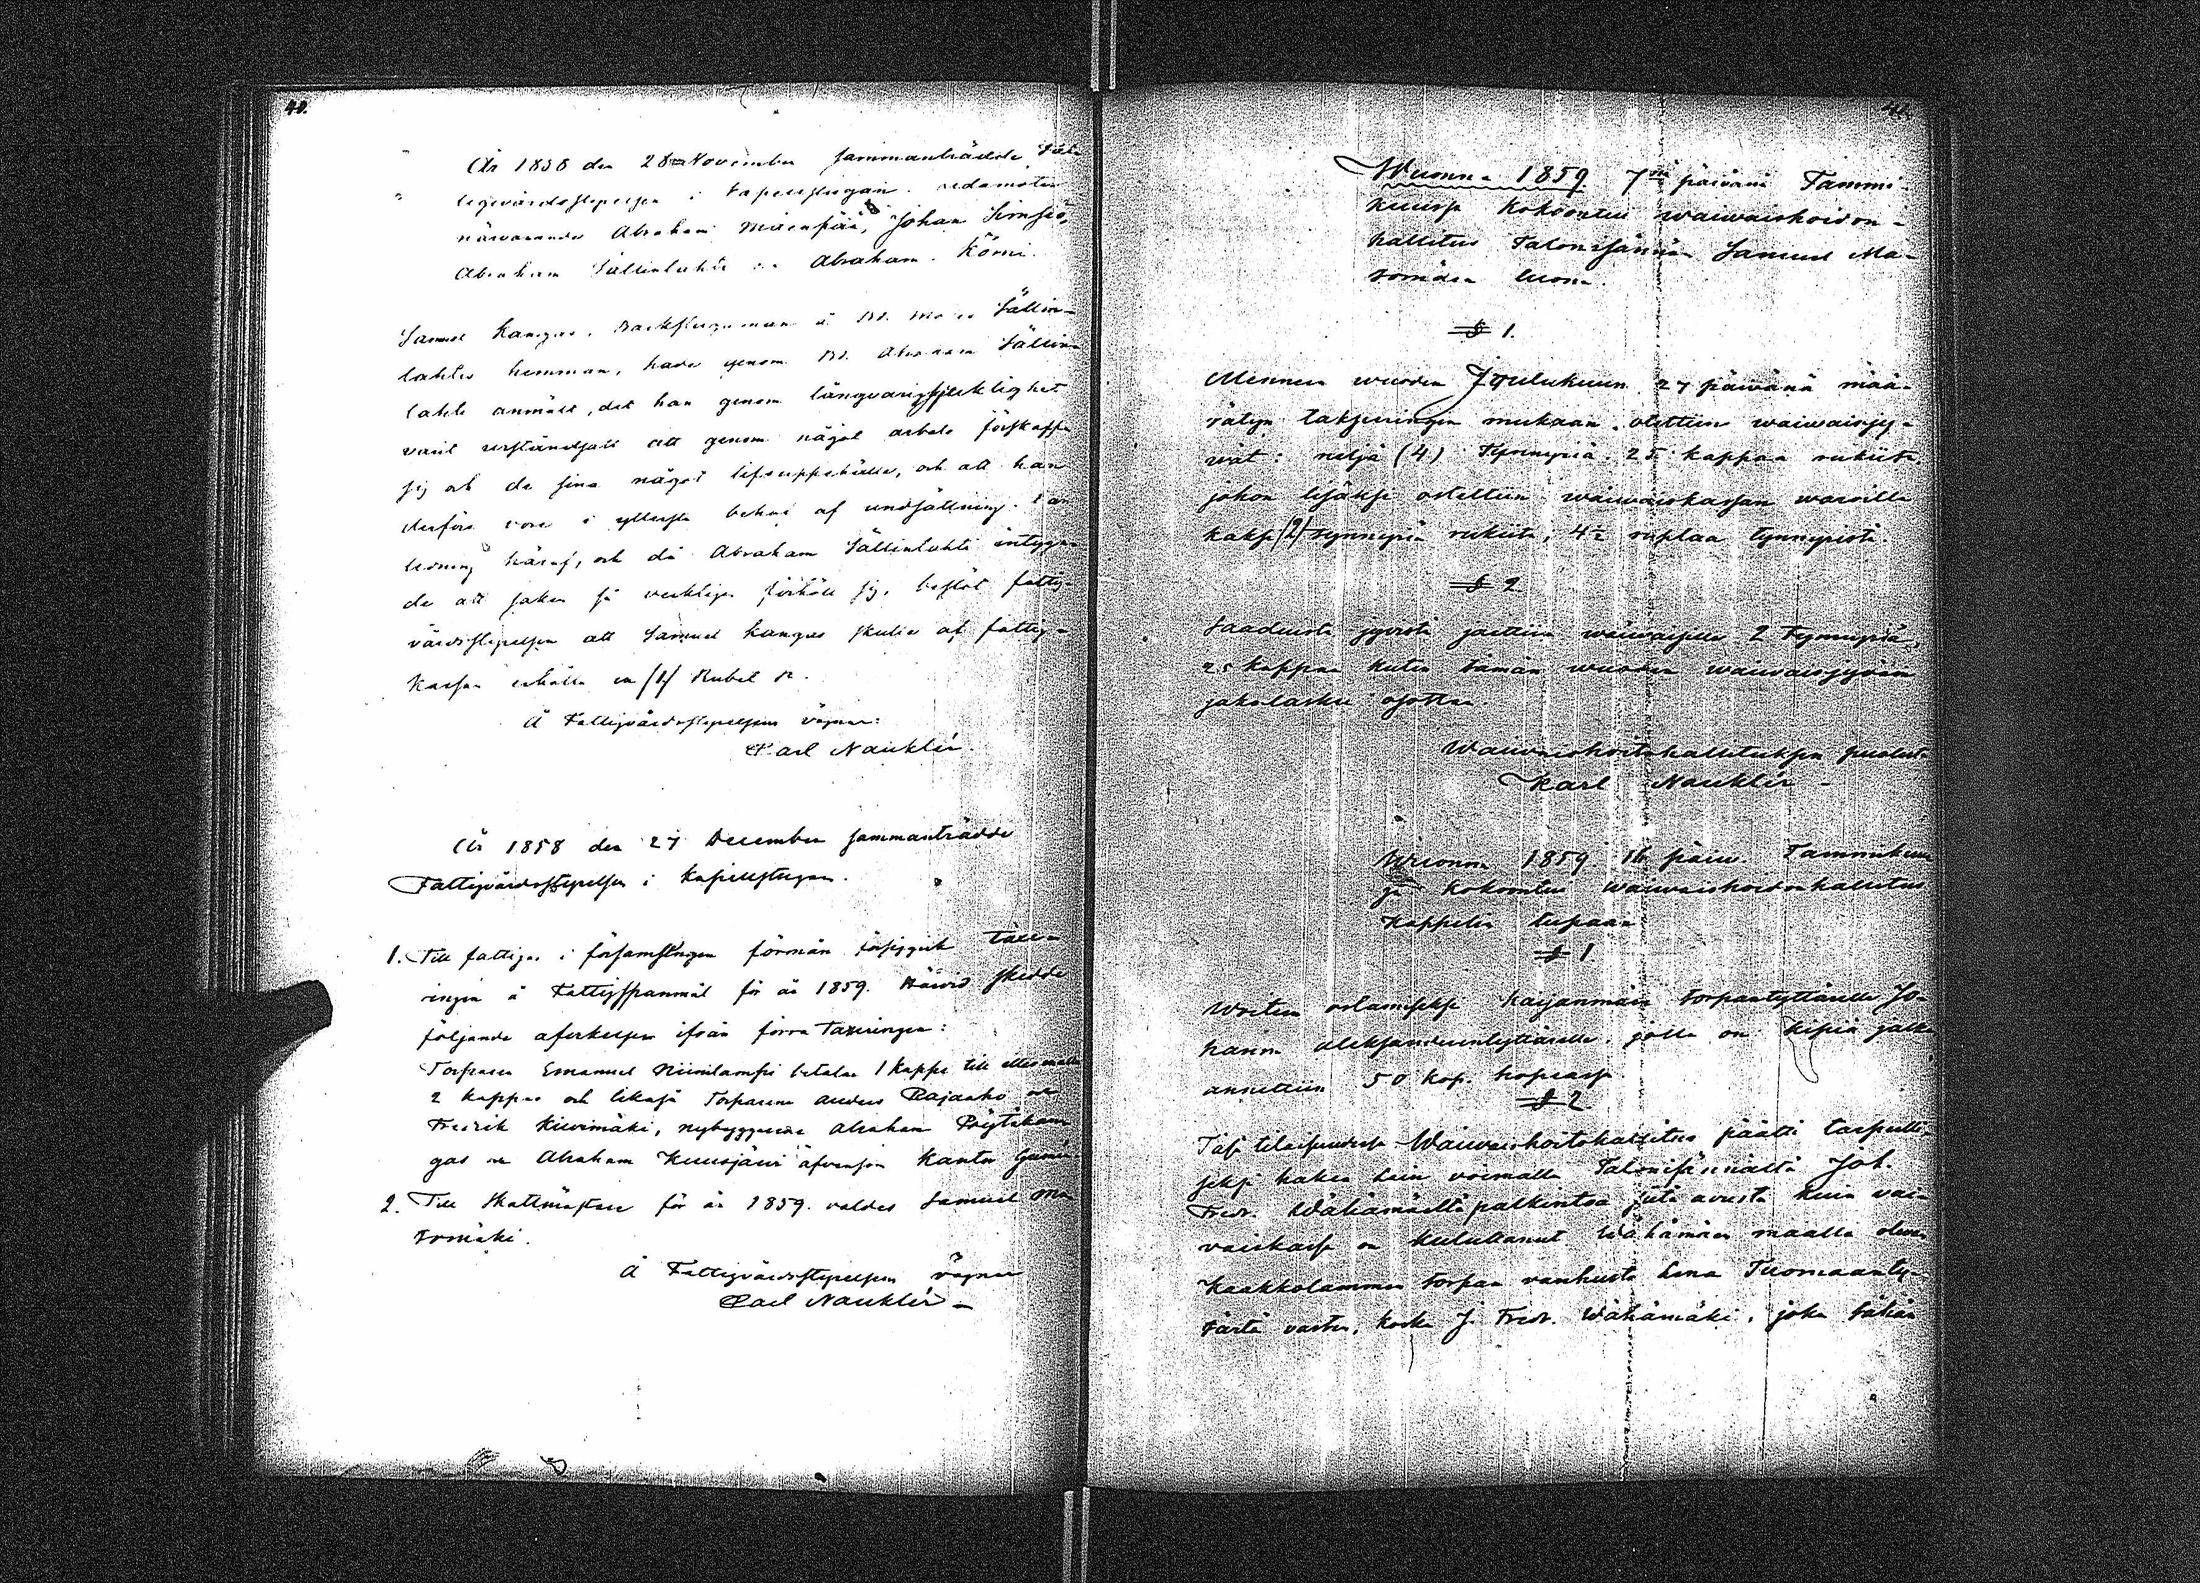 40.
År 1858 den 28 November sammanträdde Fat-
tigvårdsstyrelsen i Capellstugan. Ledamöter
närvarande Abraham Mäenpää, Johan Simsiö,
Abraham Sällinlahti och Abraham Körni.
Samuel Kangas, Backstuguman å Sällin-
lahtis hemman, hade genom Abraham Sällin-
lahti anmält, det han genom långvarig sjuklighet
varit urståndsatt att genom något arbete förskaffa
sig och de sina något lifsuppehälle, och att han
derföre vore i yttersta behof af undsättning. I an-
ledning häraf, och då Abraham Sällinlahti intyga-
de att saken så verkligen förhöll sig, beslöt fattig-
vårdsstyrelsen att Samuel Kangas skulle af fattig-
kassan erhålla en (1) Rubel
Å Fattigvårdsstyrelsens vägnar:
Carl Nauklér.
År 1858 den 27 December sammanträdde
Fattigvårdsstyrelsen i Kapellstugan.
1. Till fattigas i församlingen förmån
å Fattigspanmål för år 1859. Härvid skedde
följande afvikelser ifrån förra Taxeringen:
Torparen Emanuel Niinilampi betalar 1 kappe till
2 kappar och likaså Torparene Anders Rajaaho och
Fredrik Kivimäki, nybyggarene Abraham Pöytäkan-
gas och Abraham Kuusjärvi äfvensom Kanta
2. Till Skattmästare för år 1859 valdes Samuel Ma-
tomäki.
Å Fattigvårdsstyrelsens vägnar
Carl Nauklér
41.
Wuonna 1859 7nä päivänä Tammi-
kuussa kokoontui waiwaishoidon-
hallitus Talonisännän Samuel Ma-
tomäen luona.
§ 1.
Menneen wuoden Joulukuun 27 päiwänä mää-
rätyn takseeringin mukaan otettiin waiwaisjy-
wät: neljä (4) Tynnyriä 25 kappaa rukiita,
johon lisäksi ostettiin waiwaiskassan waroilla
kaksi (2) tynnyriä rukiita, 4½ ruplaa tynnyristä.
§ 2
Saaduista jywistä jaettiin waiwaisille 2 Tynnyriä,
25 kappaa kuten tämän wuoden waiwaisjywäin
jakolasku osottaa.
Waiwaishoitohallituksen puolesta
Karl Nauklér
Wuonna 1859 16 päiw. Tammikuu-
ssa kokoontui waiwaishoidonhallitus
Kappelin tupaan
§ 1
Woiteen ostamiseksi Harjanmäen torpantyttärelle Jo-
hanna Aleksanderintyttärelle, jolla on kipiä jalka
annettiin 50 kop. hopeassa.
§ 2
Tässä tilaisuudessa Waiwaishoitohallitus päätti tarpeelli-
seksi hakea lain voimalla Talonisännältä Joh.
Fredr. Wähämäeltä palkintoa siitä avusta kuin vai-
vaiskassa on kuluttanut Wähämäen maalla olevan
Kaakkolammin torpan vanhusta Lena Tuomaanty-
tärtä varten, koska J. Fredr. Wähämäki, joka tähän